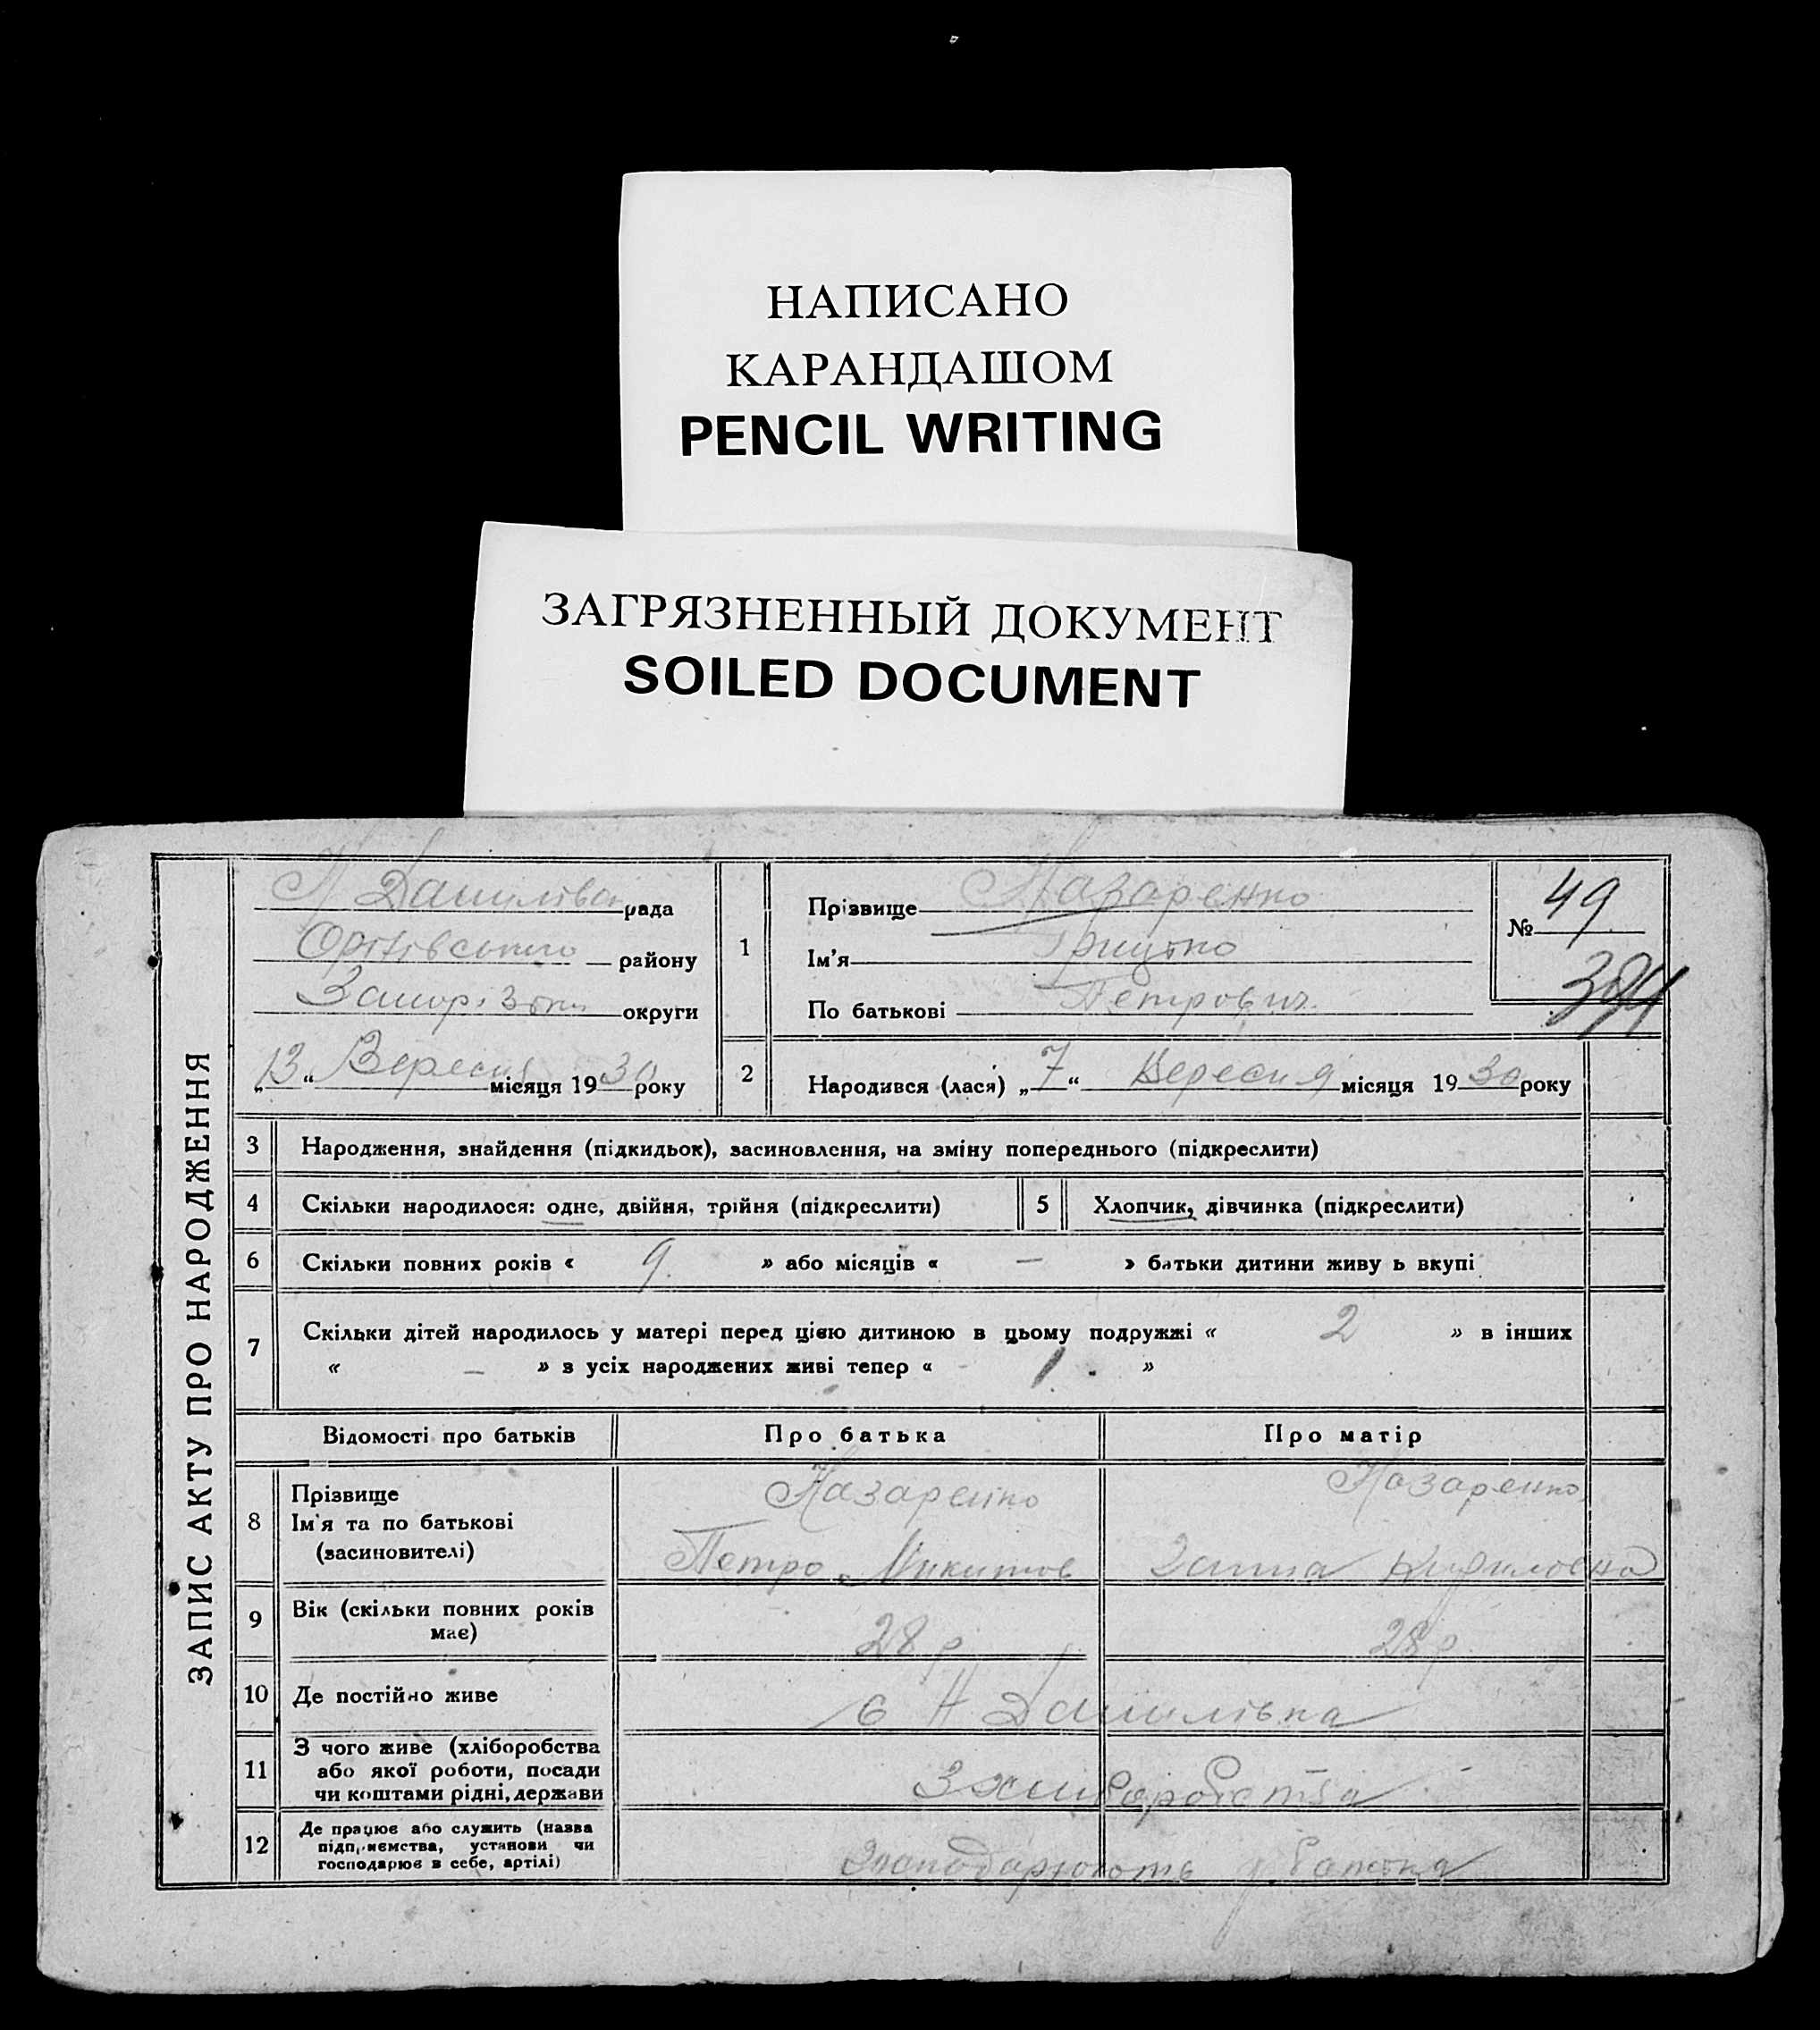 НАПИСАНО
КАРАНДАШОМ
PENCIL WRITING
ЗАГРЯЗНЕННЫЙ ДОКУМЕНТ
SOILED DOCUMENT
ЗАПИС АКТУ ПРО НАРОДЖЕННЯ
Н Данилівка рада
Оріхівського району
округи
„13“ Вересня місяця 1930 року
1
Прізвище Назаренко
Ім'я Грицько
По батькові Петрович
№ 49
394
2
Народився (лася) „7“ Вересня місяця 1930 року
3 Народження, знайдення (підкидьок), засиновлення, на зміну попереднього (підкреслити)
4 Скільки народилося: одне, двійня, трійня (підкреслити) 5 Хлопчик, дівчинка (підкреслити)
6 Скільки повних років « 9 » або місяців « — » батьки дитини живу ь вкупі
7 Скільки дітей народилось у матері перед цією дитиною в цьому подружжі « 2 » в інших
« — » з усіх народжених живі тепер « 1 »
Відомості про батьків Про батька Про матір
8 Прізвище Назаренко Назаренко
Ім'я та по батькові
(засиновителі) Петро Микитов Ганна Кириловна
9 Вік (скільки повних років
має) 28 р 28 р
10 Де постійно живе с Н Данилівка
11 З чого живе (хліборобства
або якої роботи, посади
чи коштами рідні, держави З хліборобства
12 Де працює або служить (назва
підприємства, установи чи
господарює в себе, артілі) у батька